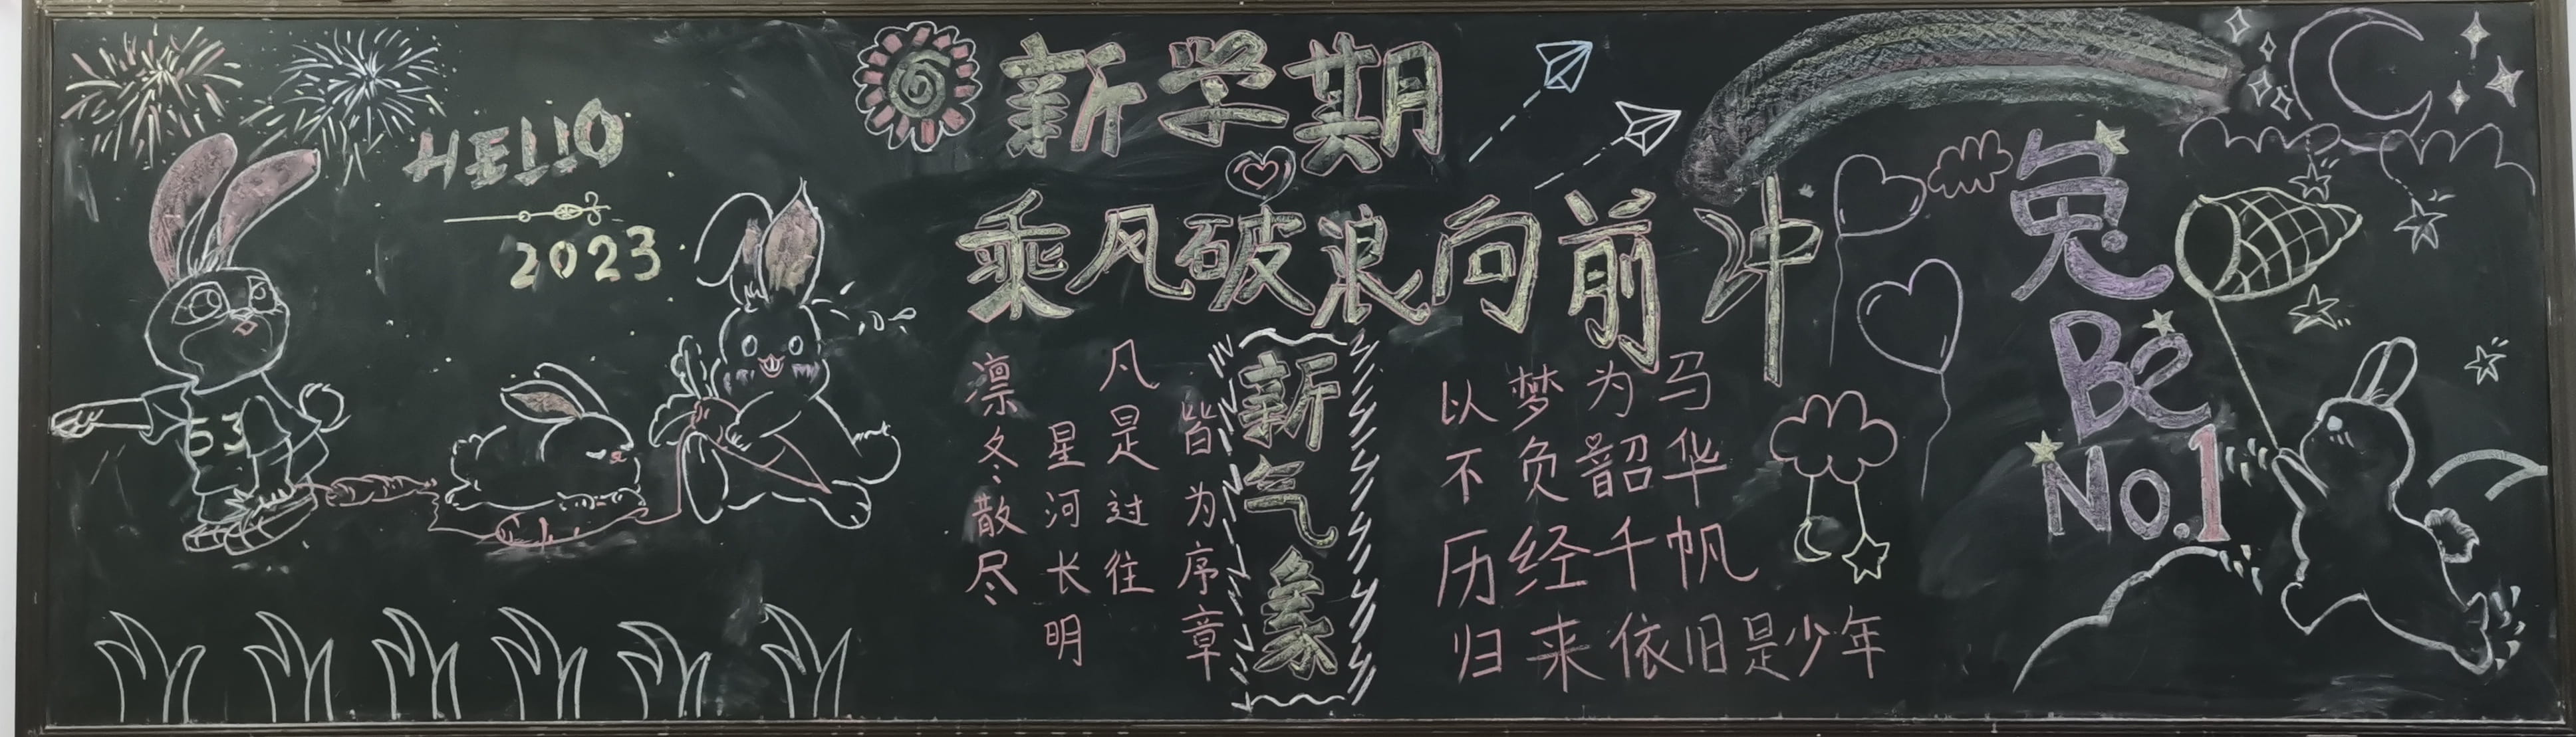 HELLO
2023
53
新学期
乘风破浪向前冲
凛冬散尽
星河长明
凡是过往
皆为序章
新气象
以梦为马
不负韶华
历经千帆
归来依旧是少年
兔
Be
No.1